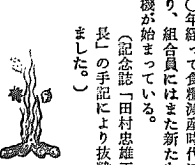 〇年経って食糧増産時代
り、組合員にはまた新たな
機が始まっている。
（記念誌「田村忠雄
長」の手記により抜
ました。）